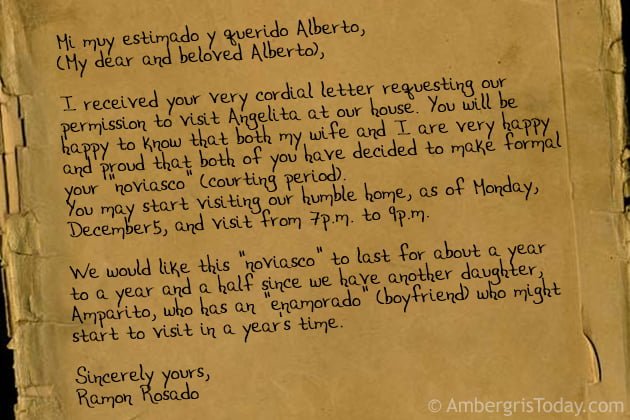 Mi muy estimado y querido Alberto,
(My dear and beloved Alberto),
I received your very cordial letter requesting our
permission to visit Angelita at our house. You will be
happy to know that both my wife and I are very happy
and proud that both of you have decided to make formal
your "noviasco" (courting period).
You may start visiting our humble home, as of Monday,
December5, and visit from 7p.m. to 9p.m.
We would like this "noviasco" to last for about a year
to a year and a half since we have another daughter,
Amparito, who has an "enamorado" (boyfriend) who might
start to visit in a year's time.
Sincerely yours,
Ramon Rosado
© AmbergrisToday.com